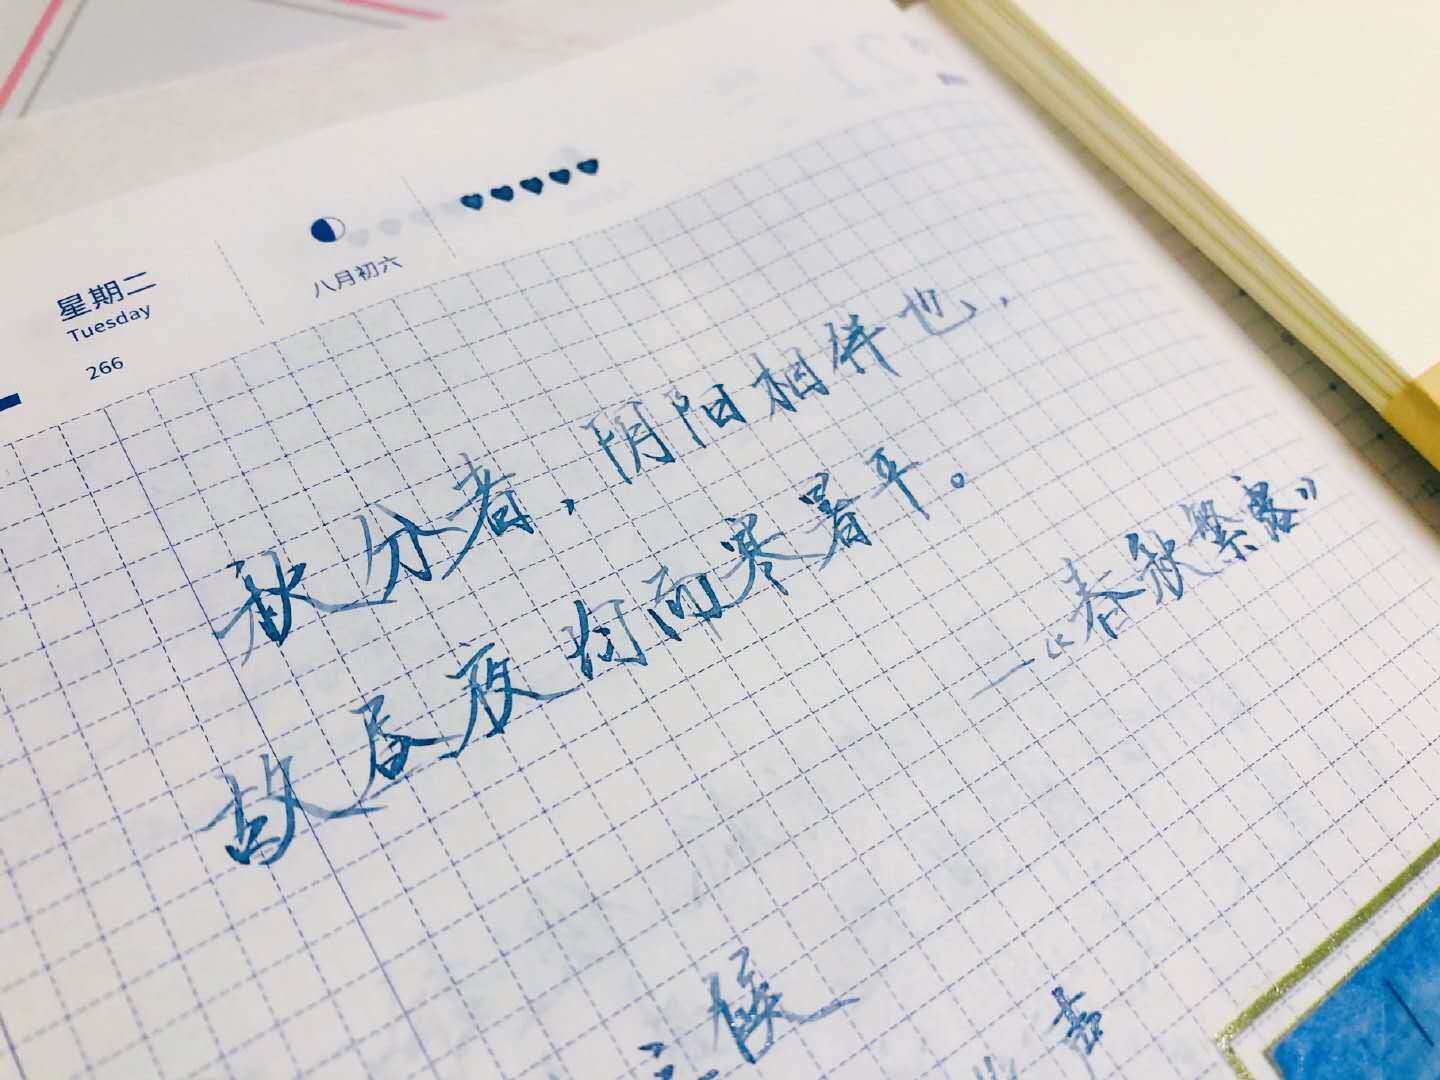 星期二
Tuesday
266
八月初六
秋分者,阴阳相伴也,
故昼夜均而寒暑平。
—《春秋繁露》
候